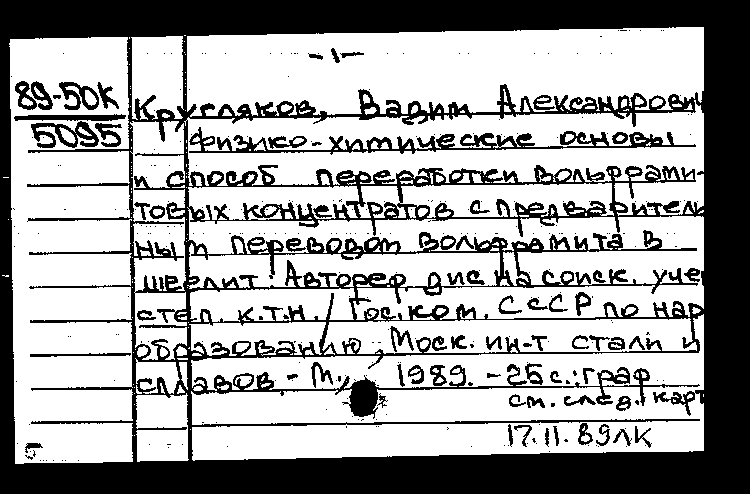 - 1 -
89-50К
5095
Кругляков, Вадим Александрович
Физико-химические основы
и способ переработки вольфрами-
товых концентратов с предваритель
ным переводом вольфрамита в
шеелит: Автореф. дис на соиск. учен
степ. к.т.н. / Гос. ком. СССР по нар
образованию, Моск. ин-т стали и
сплавов. - М., 1989. - 25 с.: граф.
см. след. карт
17.11.89 ЛК